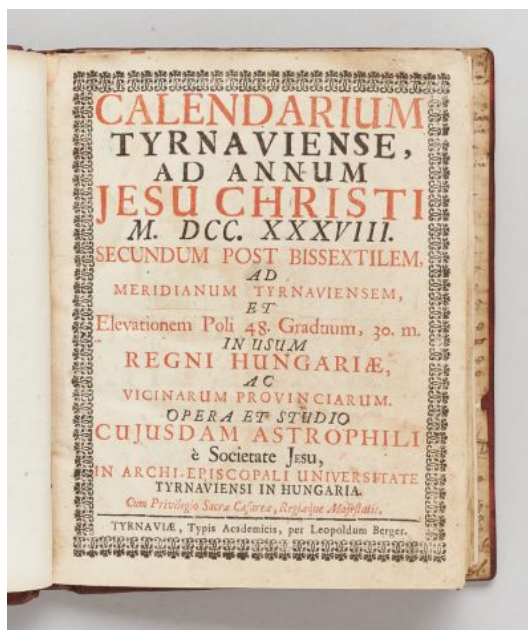 CALENDARIUM
TYRNAVIENSE,
AD ANNUM
JESU CHRISTI
M. DCC. XXXVIII.
SECUNDUM POST BISSEXTILEM,
AD
MERIDIANUM TYRNAVIENSEM,
ET
Elevationem Poli 48. Graduum, 30. m.
IN USUM
REGNI HUNGARIÆ,
AC
VICINARUM PROVINCIARUM.
OPERA ET STUDIO
CUJUSDAM ASTROPHILI
è Societate JESU,
IN ARCHI-EPISCOPALI UNIVERSITATE
TYRNAVIENSI IN HUNGARIA.
Cum Privilegio Sacræ Cæsareæ, Regiæque Majestatis.
TYRNAVIÆ, Typis Academicis, per Leopoldum Berger.